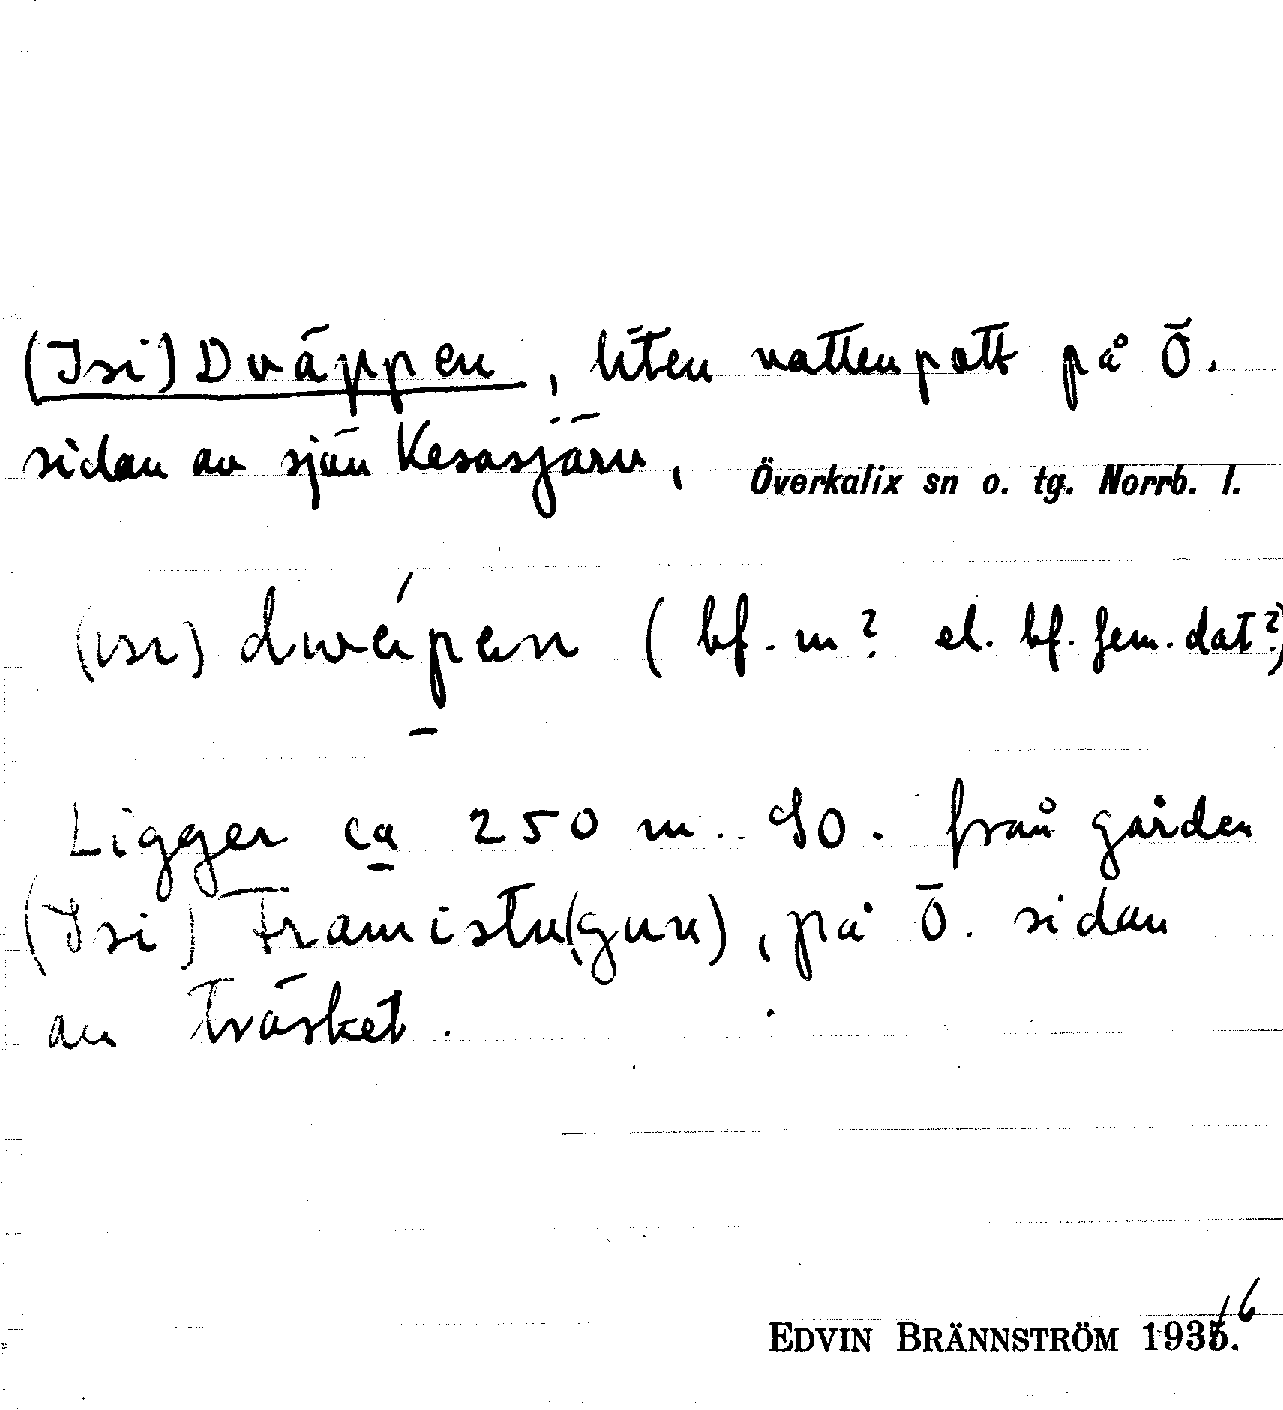 (Isi) Dväppen, liten vattenpott på Ö.
sidan av sjön Kesasjärv, Överkalix sn o. tg. Norrb. l.
(ısı) dwápen (bf. m? el. bf. fem. dat?)
Ligger ca 250 m. SO. från gården
(Isi) Framistu(gun), på Ö. sidan
av träsket.
EDVIN BRÄNNSTRÖM 1936.